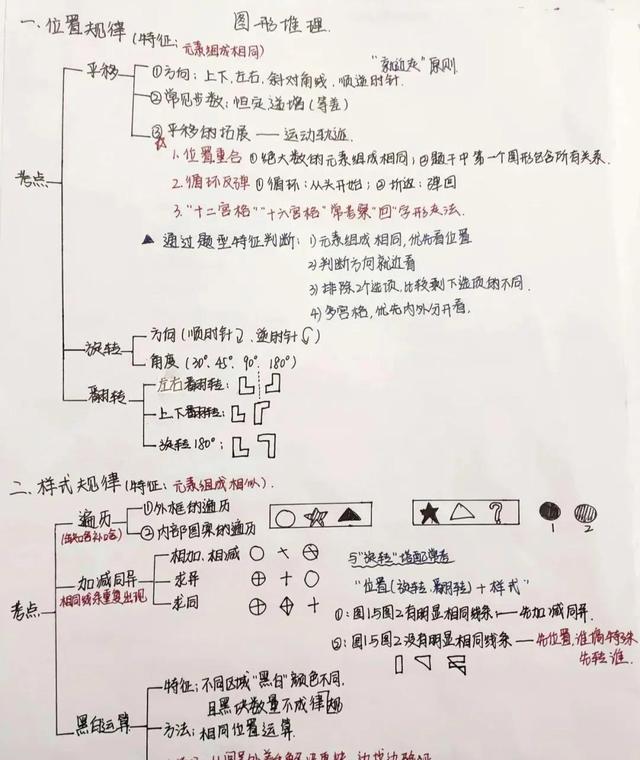 图形推理.
一、位置规律(特征:元素组成相同)
考点
平移
①方向:上下、左右、斜对角线、顺逆时针.
"就近走"原则
②常见步数:恒定 递增(等差)
③平移的拓展——运动轨迹.
1.位置重合 ①绝大数的元素组成相同;②题干中第一个图形包含所有关系.
2.循环反弹 ①循环:从头开始;②折返:弹回
3."十二宫格""十六宫格"常考察"回"字形走法.
▲ 通过题型特征判断:1)元素组成相同,优先看位置
2)判断方向就近看
3)排除2个选项,比较剩下选项的不同.
4)多宫格,优先内外分开看.
旋转
方向(顺时针、逆时针)
角度(30°、45°、90°、180°)
翻转
左右翻转:
上下翻转:
旋转180°:
二、样式规律(特征:元素组成相似).
考点
遍历
(缺啥补啥)
①外框的遍历
②内部图案的遍历
?
1
2
加减同异
相同线条重复出现
相加、相减
求异
求同
与"旋转"搭配常考
"位置(旋转、翻转)+样式"
①:图1与图2有明显相同线条——先加减同异.
②:图1与图2没有明显相同线条——先位置,谁偏特殊
先转谁.
黑白运算
特征:不同区域"黑白"颜色不同.
且黑块数量不成规律
方法:相同位置运算.